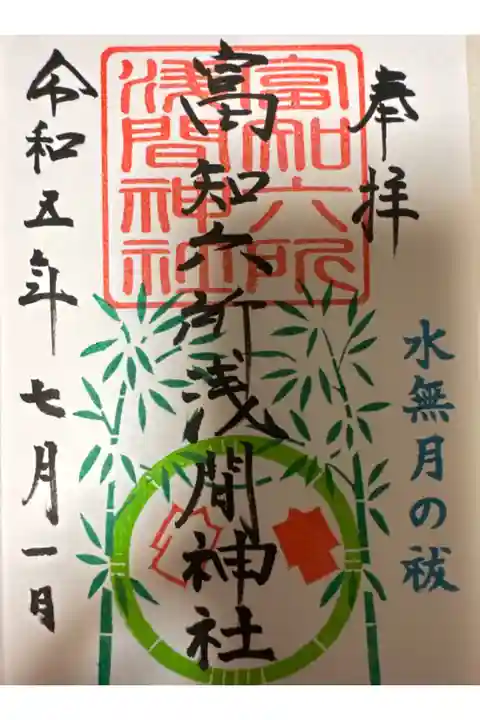 奉拝
水無月の祓
富知六所浅間神社
富知六所
浅間神社
令和五年七月一日